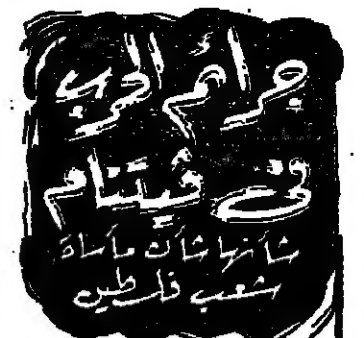 جرائم الحرب
فى ڤيتنام
شأنها شأن مأساة
شعب فلسطين